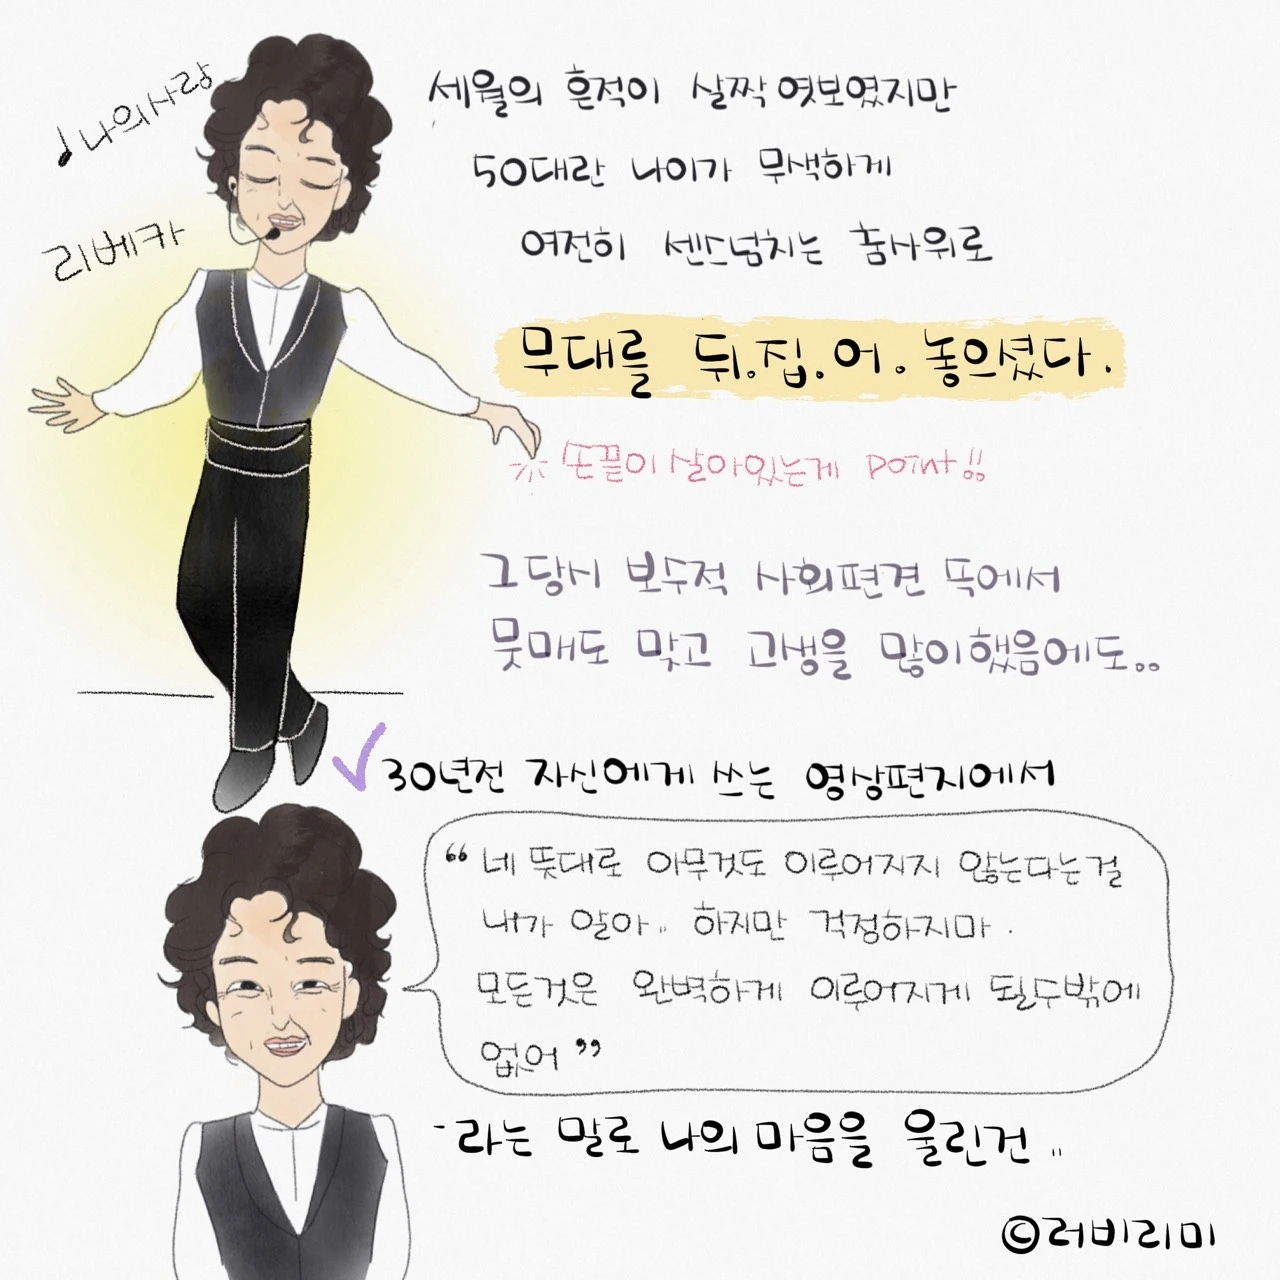 ♩나의사랑
리베카
세월의 흔적이 살짝 엿보였지만
50대란 나이가 무색하게
여전히 센스넘치는 춤사위로
무대를 뒤.집.어.놓으셨다.
※ 손끝이 살아있는게 point!!
그당시 보수적 사회편견 속에서
뭇매도 맞고 고생을 많이했음에도..
✓30년전 자신에게 쓰는 영상편지에서
“네 뜻대로 아무것도 이루어지지 않는다는걸
내가 알아.. 하지만 걱정하지마.
모든것은 완벽하게 이루어지게 될수밖에
없어”
-라는 말로 나의 마음을 울린건..
©러비리미